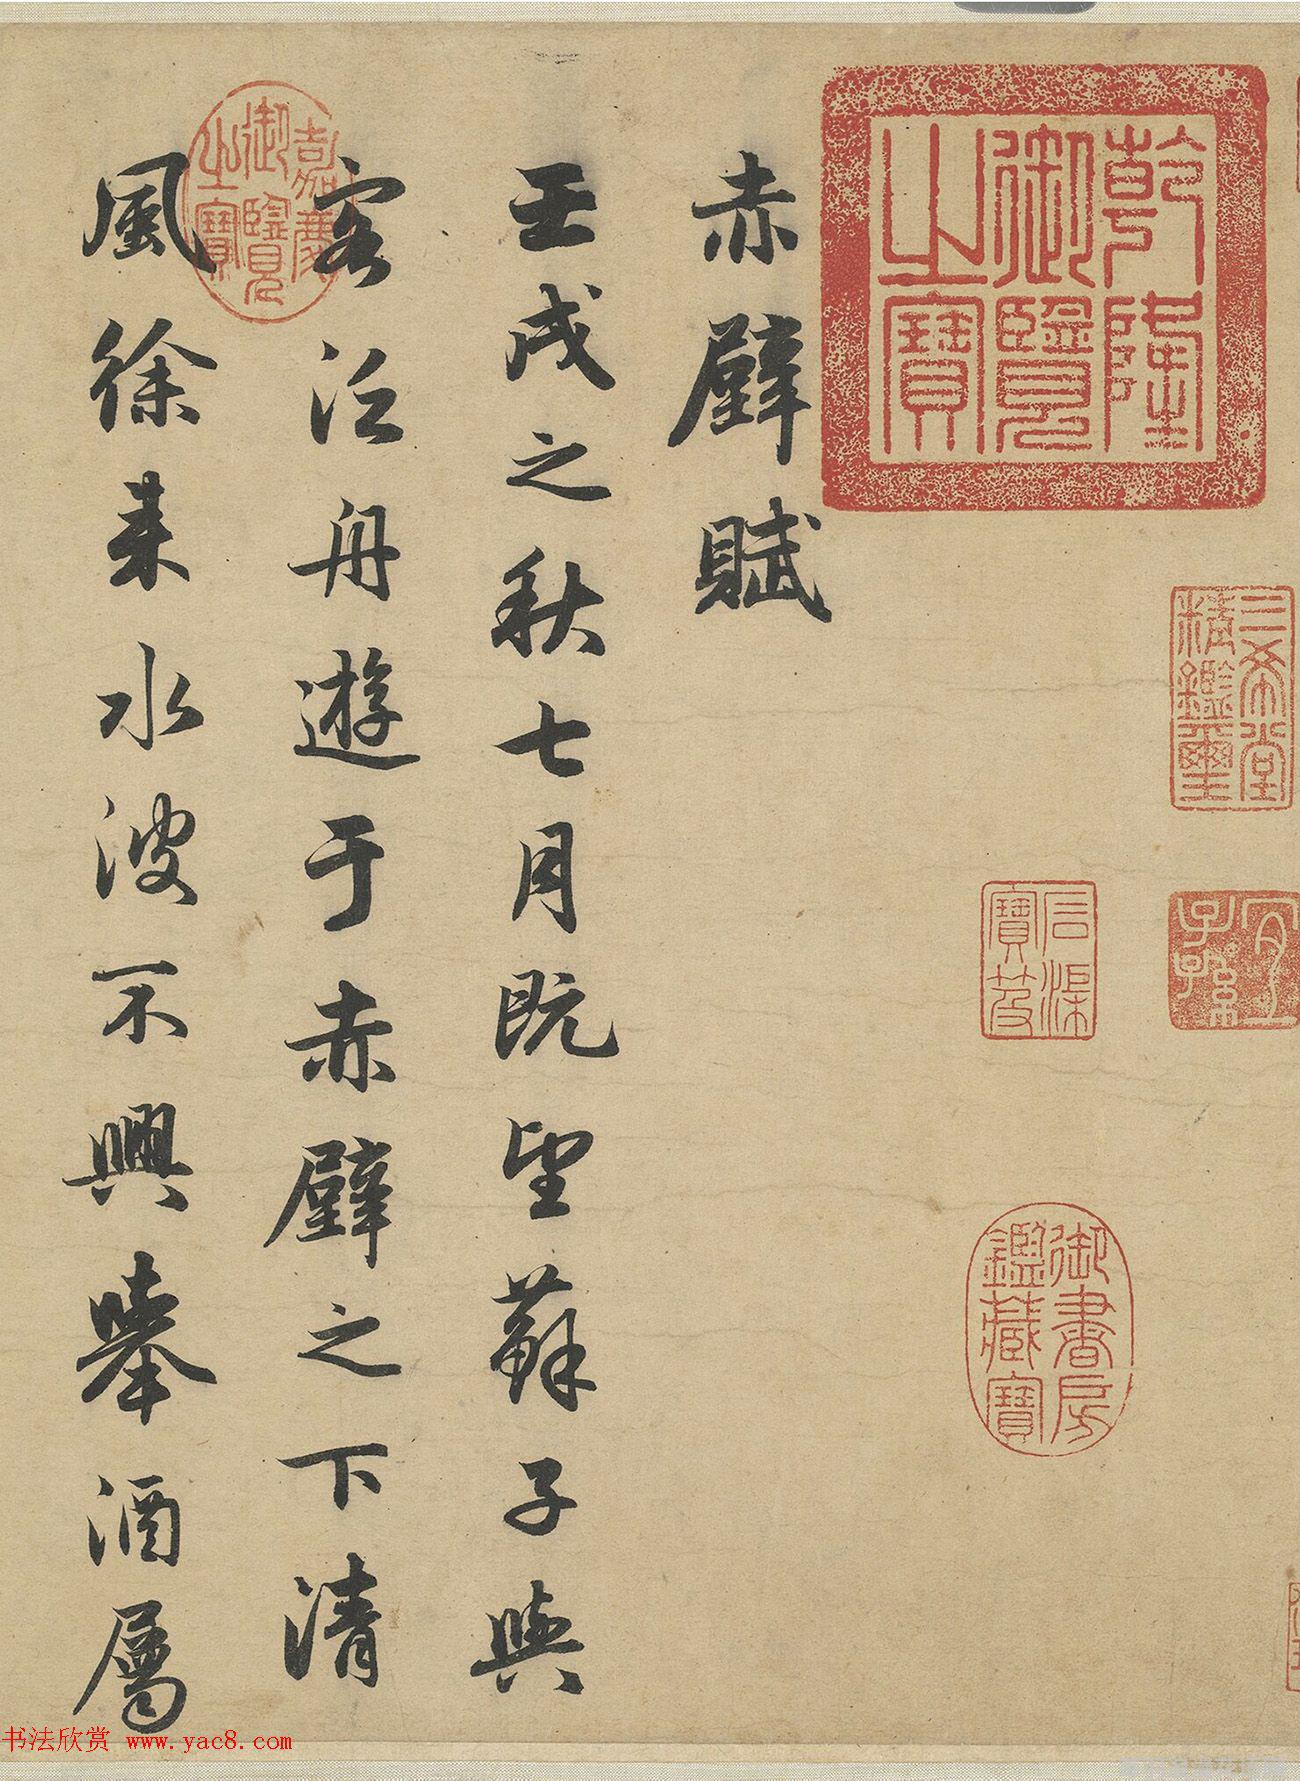 乾隆
御覽
之寶
三希堂
精鑑璽
宜
子孫
石渠
寶笈
御書房
鑑藏寶
赤壁賦
壬戌之秋七月既望蘇子與
客泛舟遊于赤壁之下清
風徐来水波不興舉酒属
嘉慶
御覽
之寶
书法欣赏 www.yac8.com